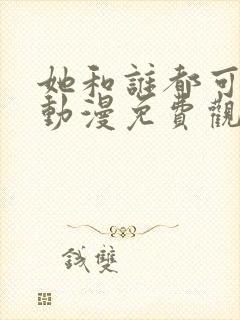 她和誰都可
動漫免費觀
錢雙